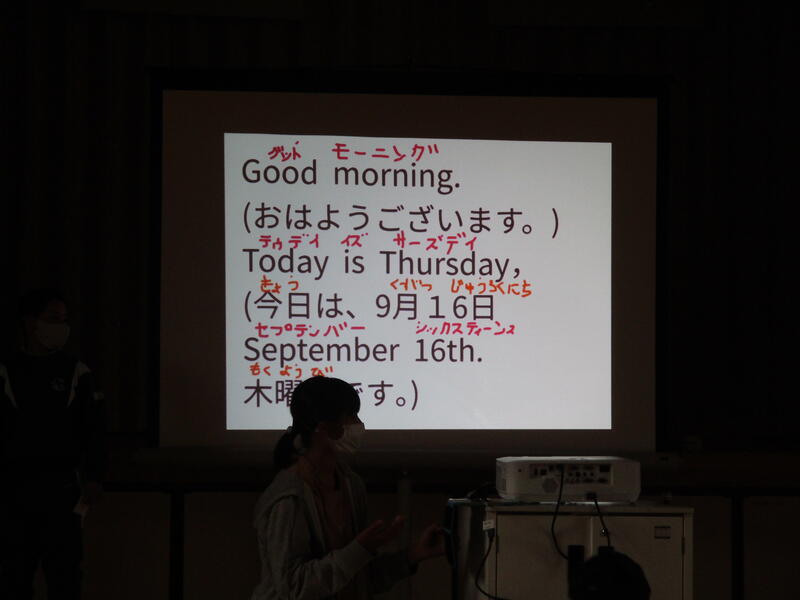 グット モーニング
Good morning.
(おはようございます。)
テゥデイ イズ サーズデイ
Today is Thursday,
きょう くがつ じゅうろくにち
(今日は、9月16日
セプテンバー シックスティーンス
September 16th.
もくようび
木曜です。)